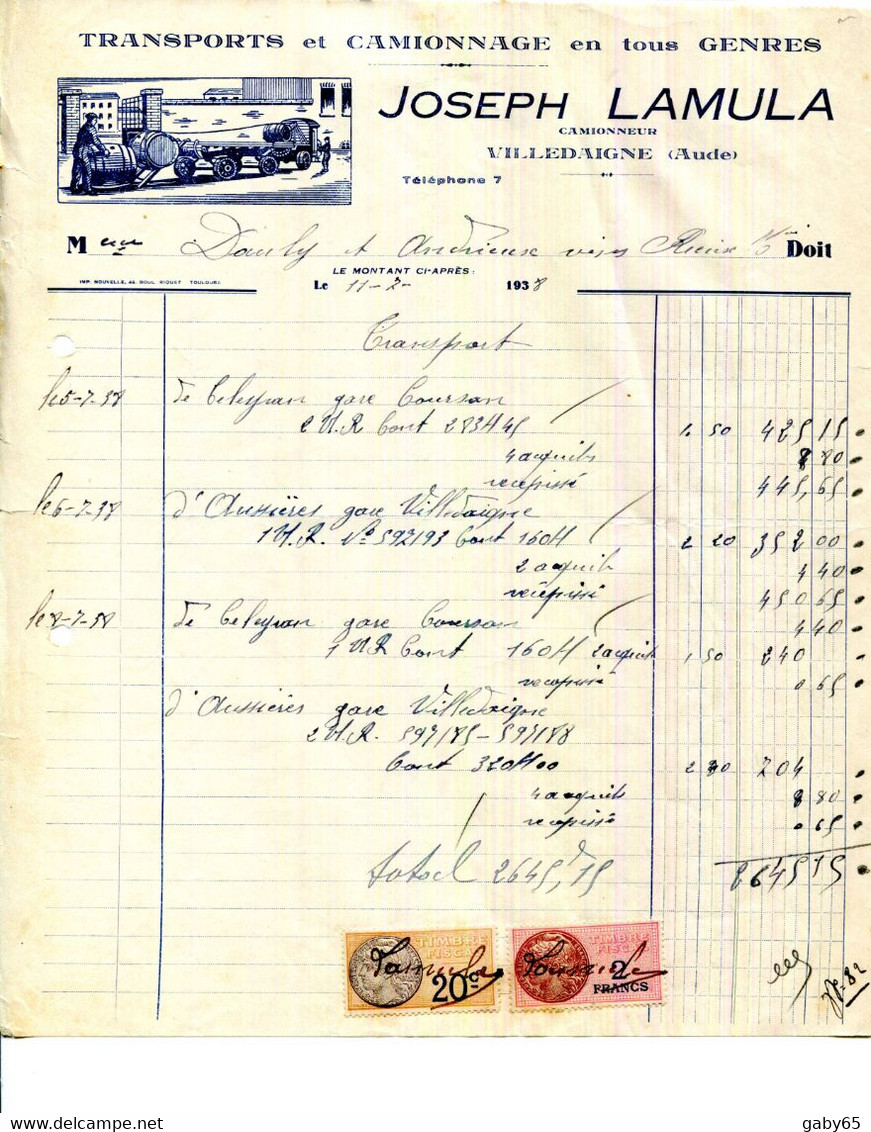 TRANSPORTS et CAMIONNAGE en tous GENRES
JOSEPH LAMULA
CAMIONNEUR
VILLEDAIGNE (Aude)
Téléphone 7
M Dauly et Andrieux Doit
LE MONTANT CI-APRÈS:
IMP. NOUVELLE, 42, BOUL. RIQUET TOULOUSE
Le 11-7- 1938
Transport
le 5-7-38 de Celeyran gare Coursan
2 U.R Cont 283H45 1 50 425 15
4 acquits 8 80
recepissé 445,65
le 6-7-38 d'Aussières gare Villedaigne
1 U.R. No 592193 Cont 160H 2 20 352 00
2 acquits 4 40
recepissé 450 65
le 8-7-38 de Celeyran gare Coursan 4 40
1 UR Cont 160H 2 acquits 1 50 240
recepissé 0 65
d'Aussières gare Villedaigne
2 U.R. 597185-597188
Cont 320H00 2 20 704
4 acquits 8 80
recepissé 0 65
total 2645,15 2645 15
TIMBRE FISCAL
20c
Lamula
TIMBRE FISCAL
2 FRANCS
Lamula
gaby65